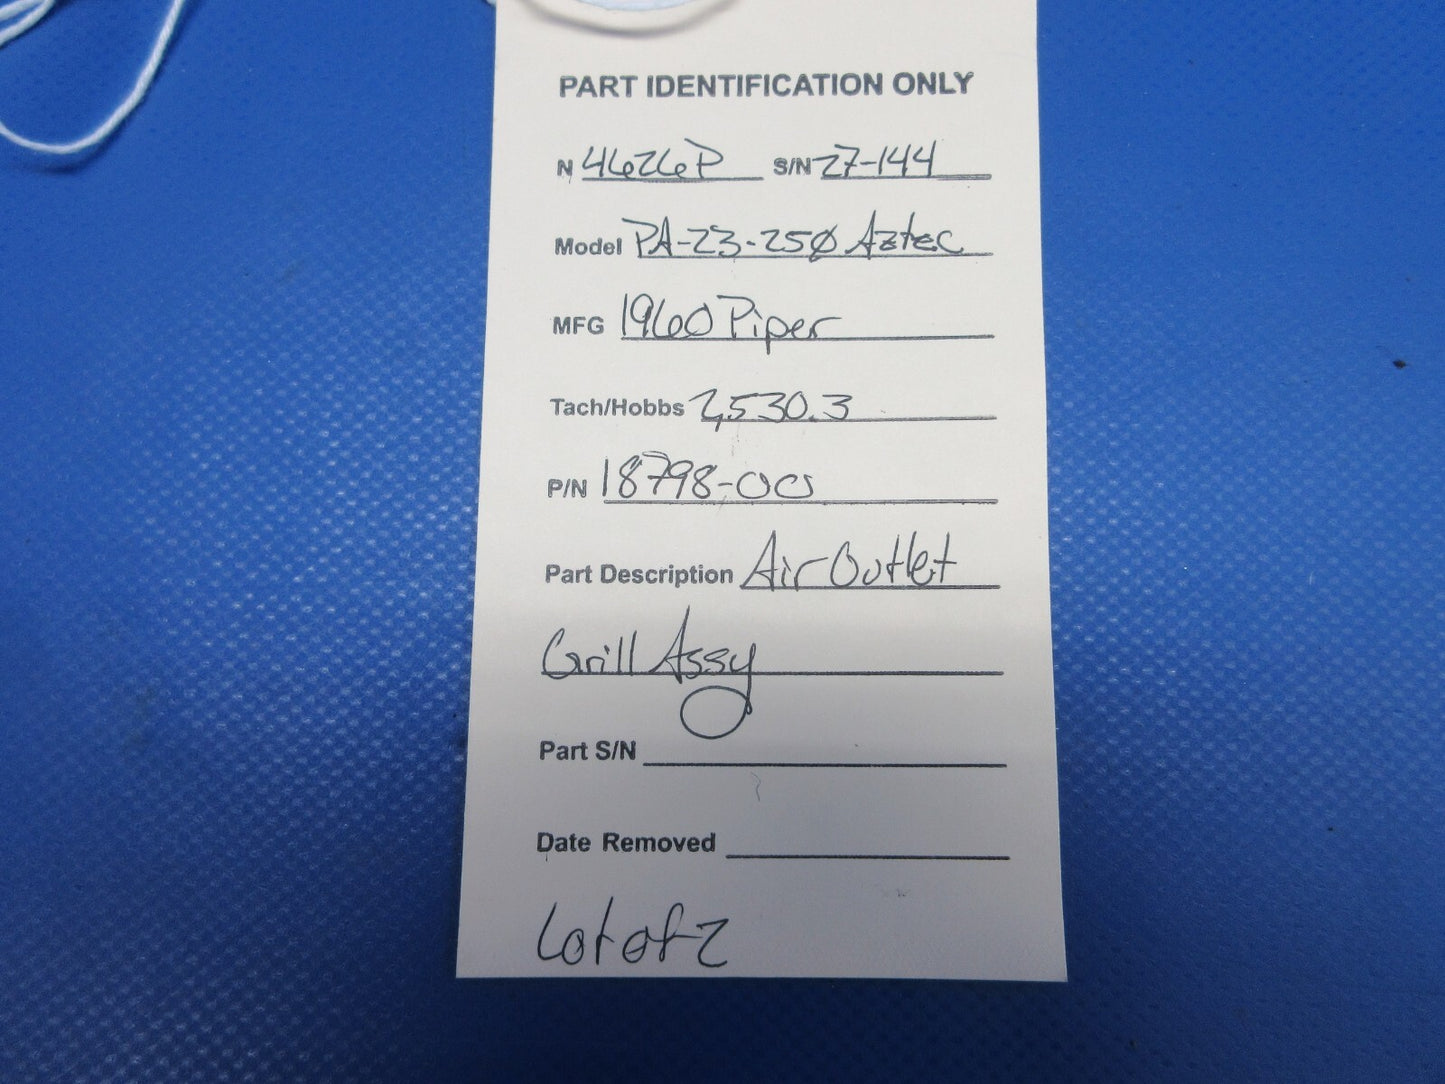 PART IDENTIFICATION ONLY
N 4626P S/N 27-144
Model PA-23-250 Aztec
MFG 1960 Piper
Tach/Hobbs 2,530.3
P/N 18798-00
Part Description Air Outlet
Grill Assy
Part S/N
Date Removed
Lot of 2